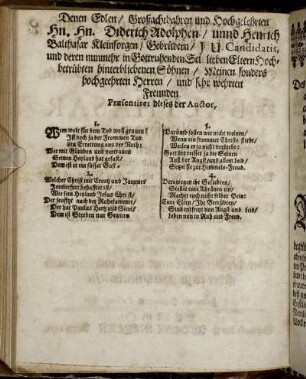 Denen Edlen / Großachtbahren und Hochgelehrten
Hn. Hn. Diderich Adolphen / unnd Henrich
Balthasar Kleinsorgen / Gebrüdern / J U. Candidatis,
und deren nunmehr in Gott ruhenden Sel. lieben Eltern Hoch-
betrübten hinterbliebenen Söhnen / Meinen sonders
hochgeehrten Herren / und sehr wehrten
Freunden
Præsentiret dieses der Auctor,
1.
Wem wolt für dem Tod woll grauen?
Ist doch in der Frommen Tod
ein Errettung aus der Noht:
Wer mit Glauben und vertrauen
Seinen Heyland hat gefast /
Dem ist er ein süsser Gast.
2.
Welcher Christ mit Creutz und Jammer
Immerfort behafftet ist /
Wie sein Heyland Jesus Christ /
Der seufftzt nach der Ruhekammer /
Der hat Paulus Hertz und Sinn /
Dem ist Sterben nur Gewinn
3.
Darümb sollen wir nicht weinen /
Wenn ein frommer Christe stirbt /
Weilen er ja nicht verdirbt:
Gott der reisset ja die Seinen
Auß der Angst / und allem leid /
Setzt sie zur Himmels-Freud.
4.
Derowegen ihr Geliebten /
Stellet eure Thränen ein /
Machet euch nicht selber Pein:
Eure Eltern / Ihr Betrübten /
Sind entfreyt von Angst und leid /
leben nun in Ruh und Freud.